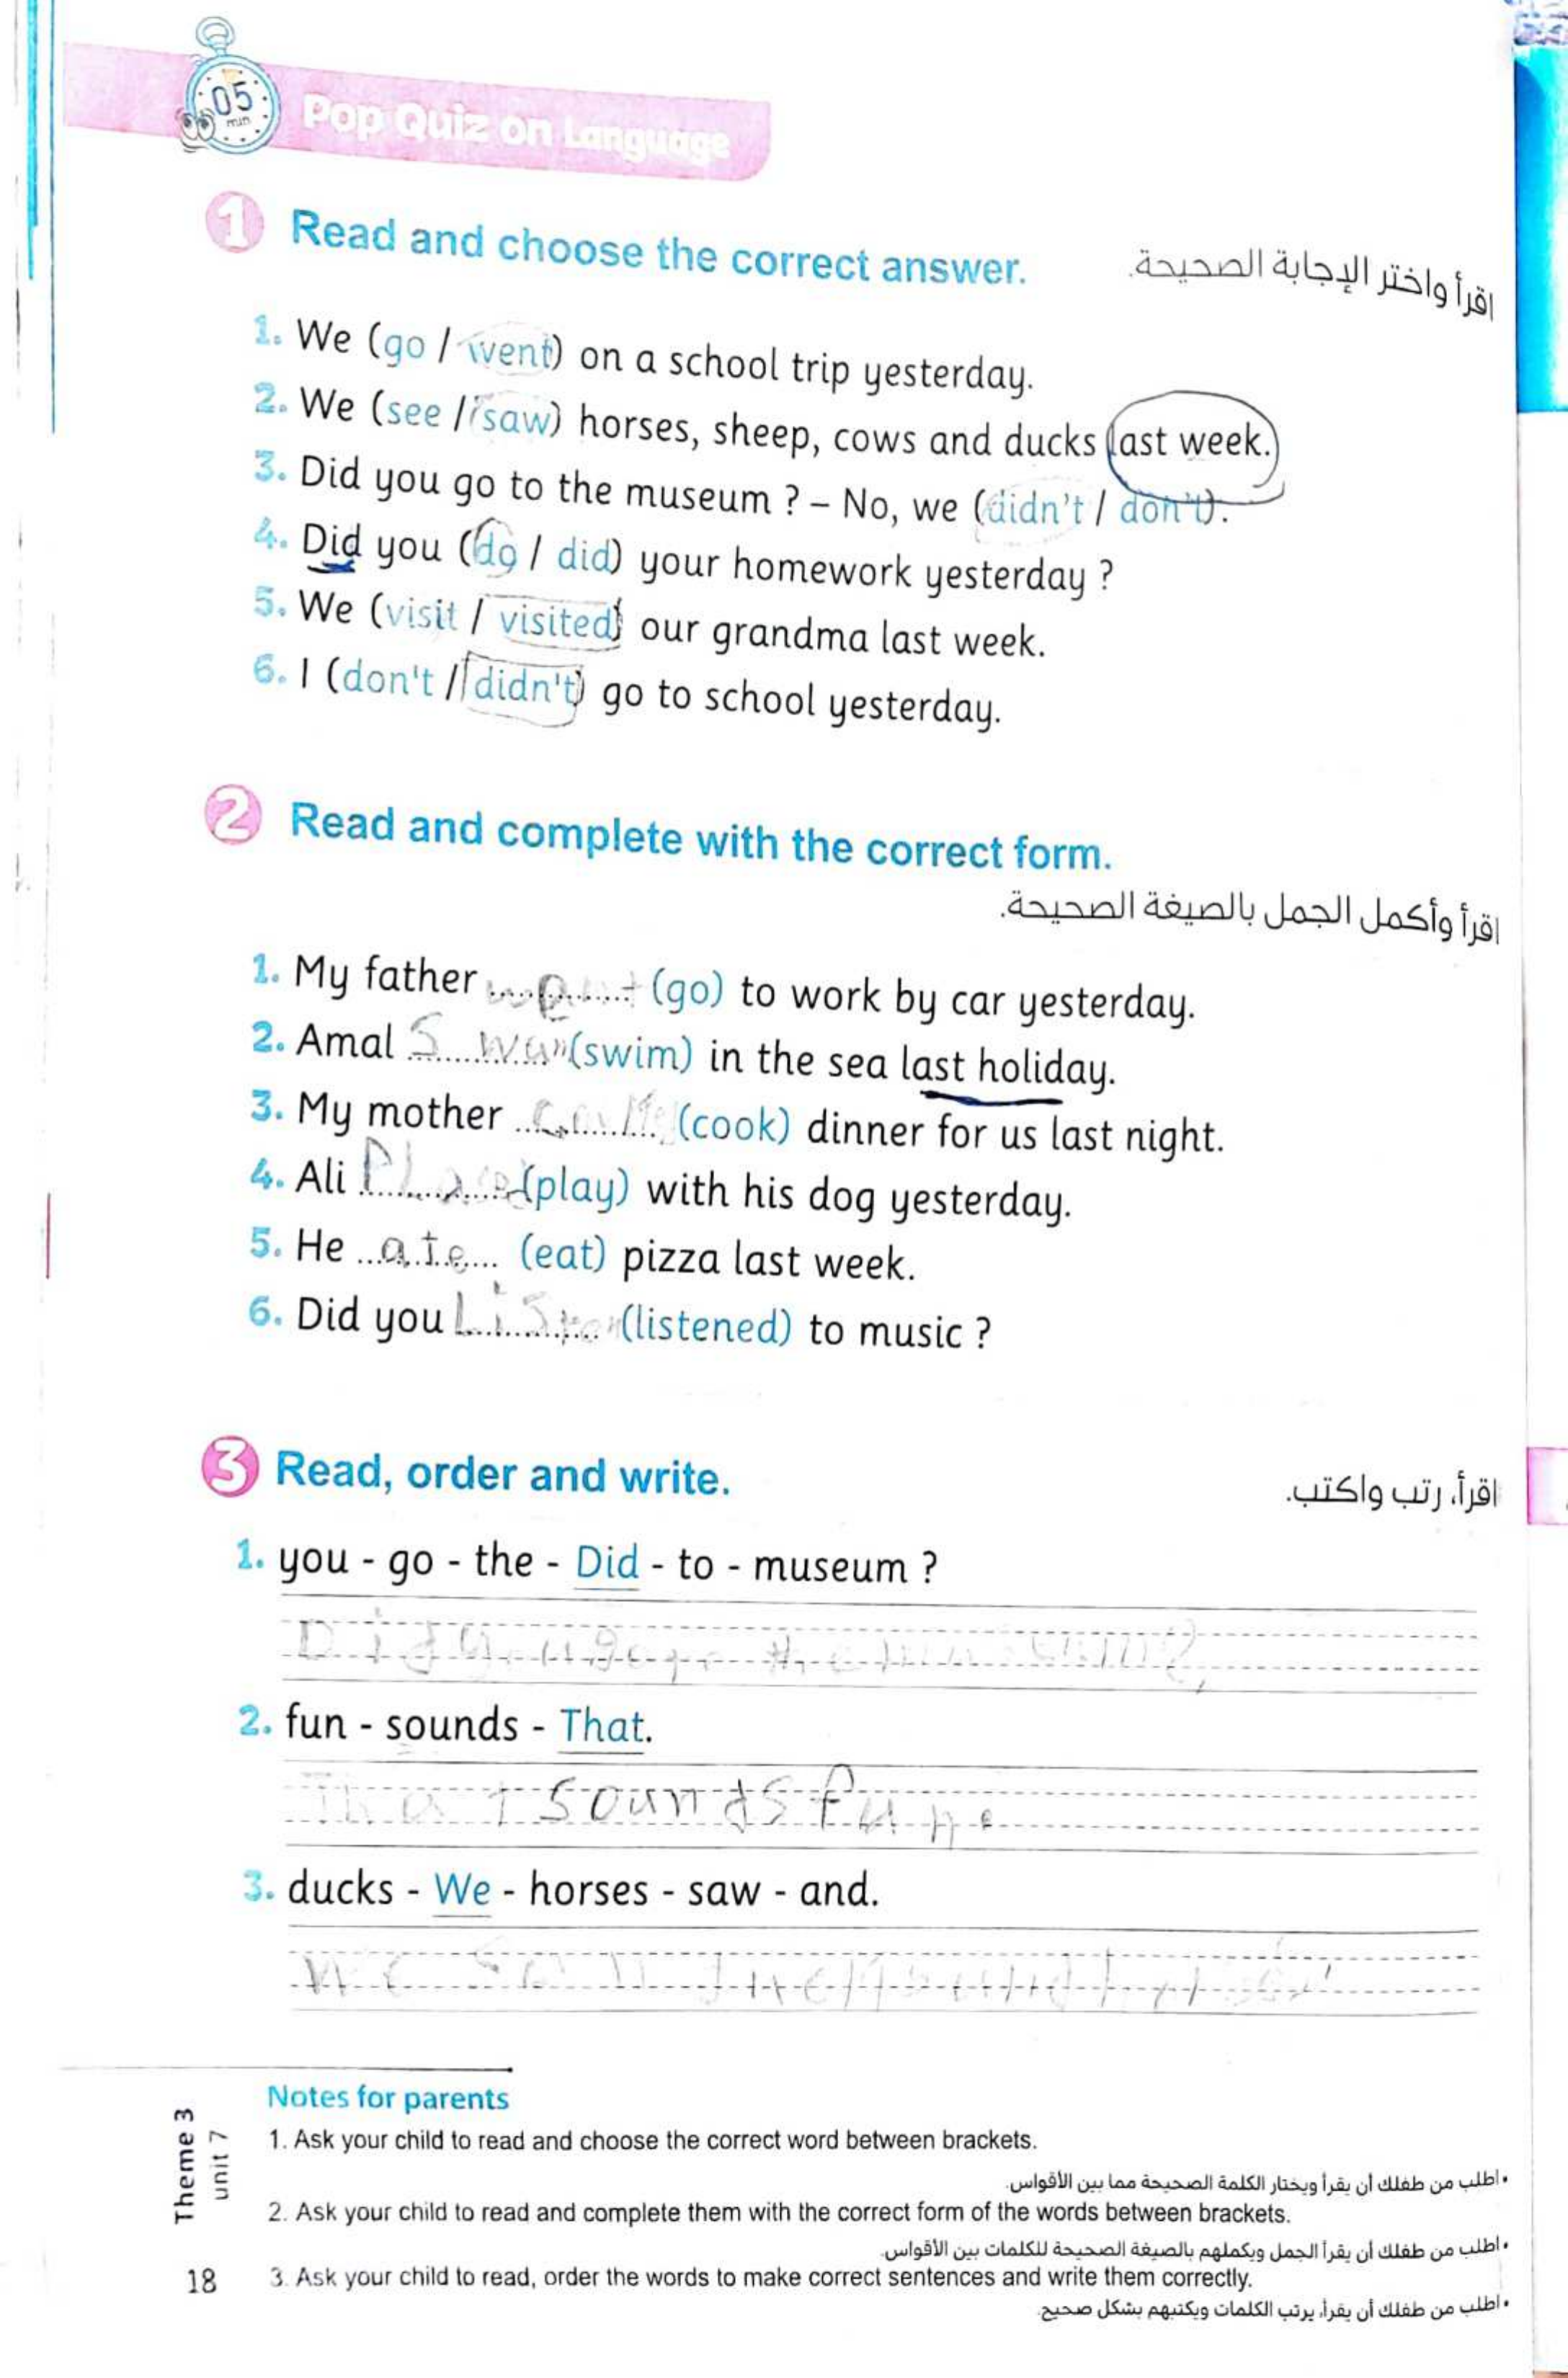 05
min
Pop Quiz on Language
1 Read and choose the correct answer.
اقرأ واختر الإجابة الصحيحة.
1. We (go / went) on a school trip yesterday.
2. We (see / saw) horses, sheep, cows and ducks last week.
3. Did you go to the museum ? – No, we (didn't / don't).
4. Did you (do / did) your homework yesterday ?
5. We (visit / visited) our grandma last week.
6. I (don't / didn't) go to school yesterday.
2 Read and complete with the correct form.
اقرأ وأكمل الجمل بالصيغة الصحيحة.
1. My father ............ (go) to work by car yesterday.
2. Amal S wam (swim) in the sea last holiday.
3. My mother ............ (cook) dinner for us last night.
4. Ali ............ (play) with his dog yesterday.
5. He ...ate... (eat) pizza last week.
6. Did you Listen (listened) to music ?
3 Read, order and write.
اقرأ، رتب واكتب.
1. you - go - the - Did - to - museum ?
Did you go to the museum?
2. fun - sounds - That.
That sounds fun.
3. ducks - We - horses - saw - and.
We saw
Notes for parents
1. Ask your child to read and choose the correct word between brackets.
• اطلب من طفلك أن يقرأ ويختار الكلمة الصحيحة مما بين الأقواس.
2. Ask your child to read and complete them with the correct form of the words between brackets.
• اطلب من طفلك أن يقرأ الجمل ويكملهم بالصيغة الصحيحة للكلمات بين الأقواس.
3. Ask your child to read, order the words to make correct sentences and write them correctly.
• اطلب من طفلك أن يقرأ، يرتب الكلمات ويكتبهم بشكل صحيح.
Theme 3
unit 7
18